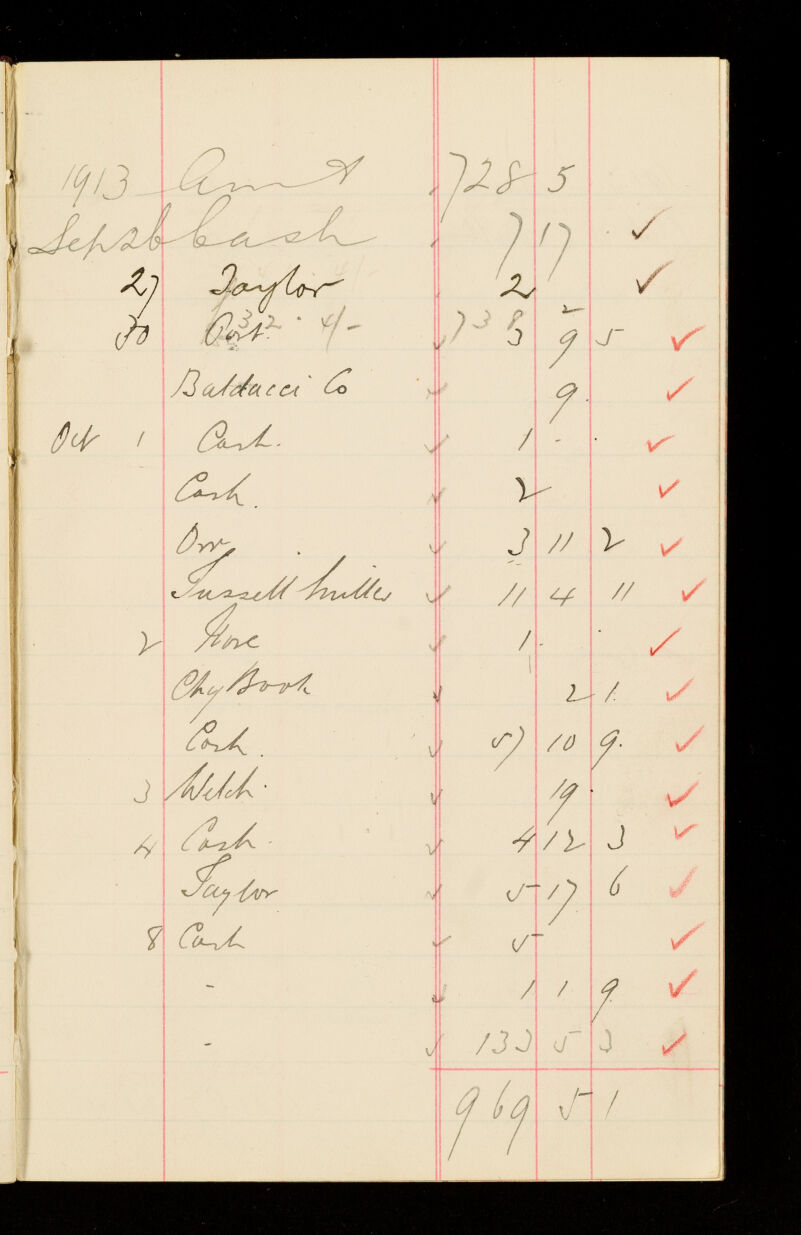 1913 Amt 728 5
Sep 26 Cash 7 17
27 Taylor 2
738 2
30 Post. 3 9 5
Baldacci Co 9
Oct 1 Cash. 1 -
Cash. 2
Orr 3 11 2
Tussell Miller 11 4 11
2 Hore 1
Chq Book 2 1
Cash. 57 10 9.
3 Welch. 19
4 Cash. 4 12 3
Taylor 5 17 6
8 Cash 5
- 1 1 9
- 133 5 3
969 5 1